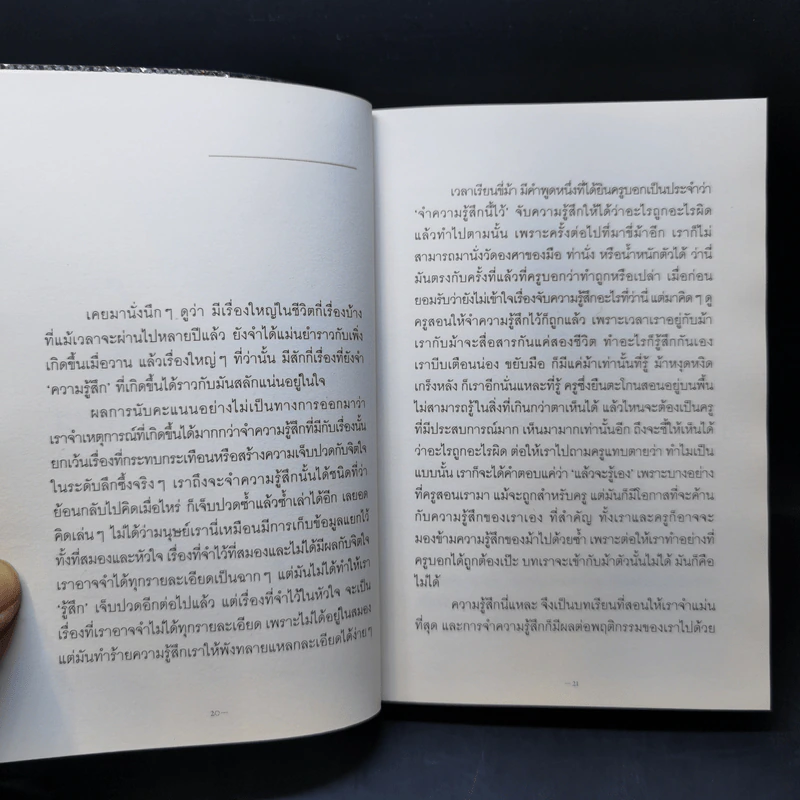 เคยมานั่งนึกๆ ดูว่า มีเรื่องใหญ่ในชีวิตกี่เรื่องบ้าง
ที่แม้เวลาจะผ่านไปหลายปีแล้ว ยังจำได้แม่นยำราวกับเพิ่ง
เกิดขึ้นเมื่อวาน แล้วเรื่องใหญ่ๆ ที่ว่านั้น มีสักกี่เรื่องที่ยังจำ
‘ความรู้สึก’ ที่เกิดขึ้นได้ราวกับมันสลักแน่นอยู่ในใจ
ผลการนับคะแนนอย่างไม่เป็นทางการออกมาว่า
เราจำเหตุการณ์ที่เกิดขึ้นได้มากกว่าจำความรู้สึกที่มีกับเรื่องนั้น
ยกเว้นเรื่องที่กระทบกระเทือนหรือสร้างความเจ็บปวดกับจิตใจ
ในระดับลึกซึ้งจริงๆ เราถึงจะจำความรู้สึกนั้นได้ชนิดที่ว่า
ย้อนกลับไปคิดเมื่อไหร่ ก็เจ็บปวดซ้ำแล้วซ้ำเล่าได้อีก เลยอด
คิดเล่นๆ ไม่ได้ว่ามนุษย์เรานี่เหมือนมีการเก็บข้อมูลแยกไว้
ทั้งที่สมองและหัวใจ เรื่องที่จำไว้ที่สมองและไม่ได้มีผลกับจิตใจ
เราอาจจำได้ทุกรายละเอียดเป็นฉากๆ แต่มันไม่ได้ทำให้เรา
‘รู้สึก’ เจ็บปวดอีกต่อไปแล้ว แต่เรื่องที่จำไว้ในหัวใจ จะเป็น
เรื่องที่เราอาจจำไม่ได้ทุกรายละเอียด เพราะไม่ได้อยู่ในสมอง
แต่มันทำร้ายความรู้สึกเราให้พังทลายแหลกละเอียดได้ง่ายๆ
20—
เวลาเรียนขี่ม้า มีคำพูดหนึ่งที่ได้ยินครูบอกเป็นประจำว่า
‘จำความรู้สึกนี้ไว้’ จับความรู้สึกให้ได้ว่าอะไรถูกอะไรผิด
แล้วทำไปตามนั้น เพราะครั้งต่อไปที่มาขี่ม้าอีก เราก็ไม่
สามารถมานั่งวัดองศาของมือ ท่านั่ง หรือน้ำหนักตัวได้ ว่านี่
มันตรงกับครั้งที่แล้วที่ครูบอกว่าทำถูกหรือเปล่า เมื่อก่อน
ยอมรับว่ายังไม่เข้าใจเรื่องจับความรู้สึกอะไรที่ว่านี่ แต่มาคิดๆ ดู
ครูสอนให้จำความรู้สึกไว้ก็ถูกแล้ว เพราะเวลาเราอยู่กับม้า
เรากับม้าจะสื่อสารกันแค่สองชีวิต ทำอะไรก็รู้สึกกันเอง
เราบีบเตือนน่อง ขยับมือ ก็มีแค่ม้าเท่านั้นที่รู้ ม้าหงุดหงิด
เกร็งหลัง ก็เราอีกนั่นแหละที่รู้ ครูซึ่งยืนตะโกนสอนอยู่บนพื้น
ไม่สามารถรู้ในสิ่งที่เกินกว่าตาเห็นได้ แล้วไหนจะต้องเป็นครู
ที่มีประสบการณ์มาก เห็นมามากเท่านั้นอีก ถึงจะชี้ให้เห็นได้
ว่าอะไรถูกอะไรผิด ต่อให้เราไปถามครูแทบตายว่า ทำไมเป็น
แบบนั้น เราก็จะได้คำตอบแค่ว่า ‘แล้วจะรู้เอง’ เพราะบางอย่าง
ที่ครูสอนเรามา แม้จะถูกสำหรับครู แต่มันก็มีโอกาสที่จะค้าน
กับความรู้สึกของเราเอง ที่สำคัญ ทั้งเราและครูก็อาจจะ
มองข้ามความรู้สึกของม้าไปด้วยซ้ำ เพราะต่อให้เราทำอย่างที่
ครูบอกได้ถูกต้องเป๊ะ บทเราจะเข้ากับม้าตัวนั้นไม่ได้ มันก็คือ
ไม่ได้
ความรู้สึกนี่แหละ จึงเป็นบทเรียนที่สอนให้เราจำแม่น
ที่สุด และการจำความรู้สึกก็มีผลต่อพฤติกรรมของเราไปด้วย
—21